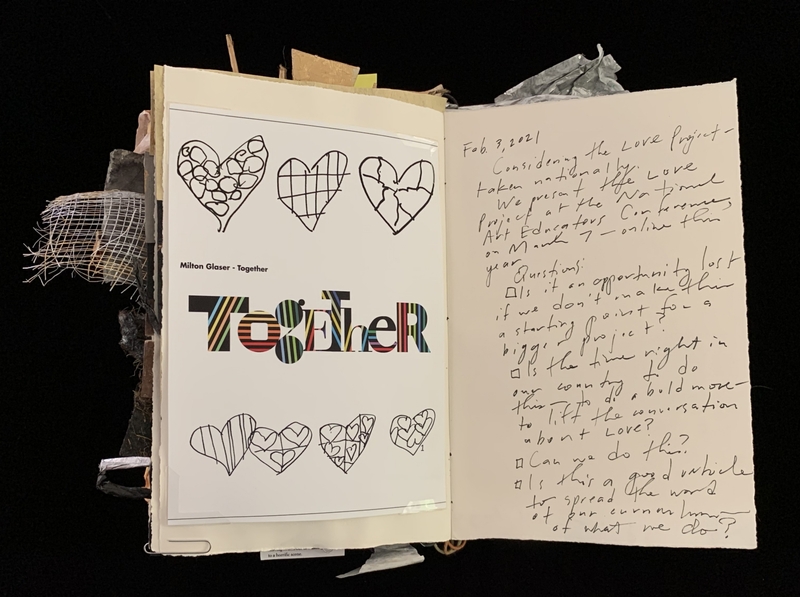 Milton Glaser - Together
TogETheR
1
Feb. 3, 2021
Considering the Love Project -
taken nationally.
We present the Love
Project at the National
Art Educators Conference
on March 7 - online this
year
Questions:
Is it an opportunity lost
if we don't make this
a starting point for a
bigger project?
Is the time right in
our country to do
this - to do a bold move -
to lift the conversation
about Love?
Can we do this?
Is this a good vehicle
to spread the word
of our
of what we do?